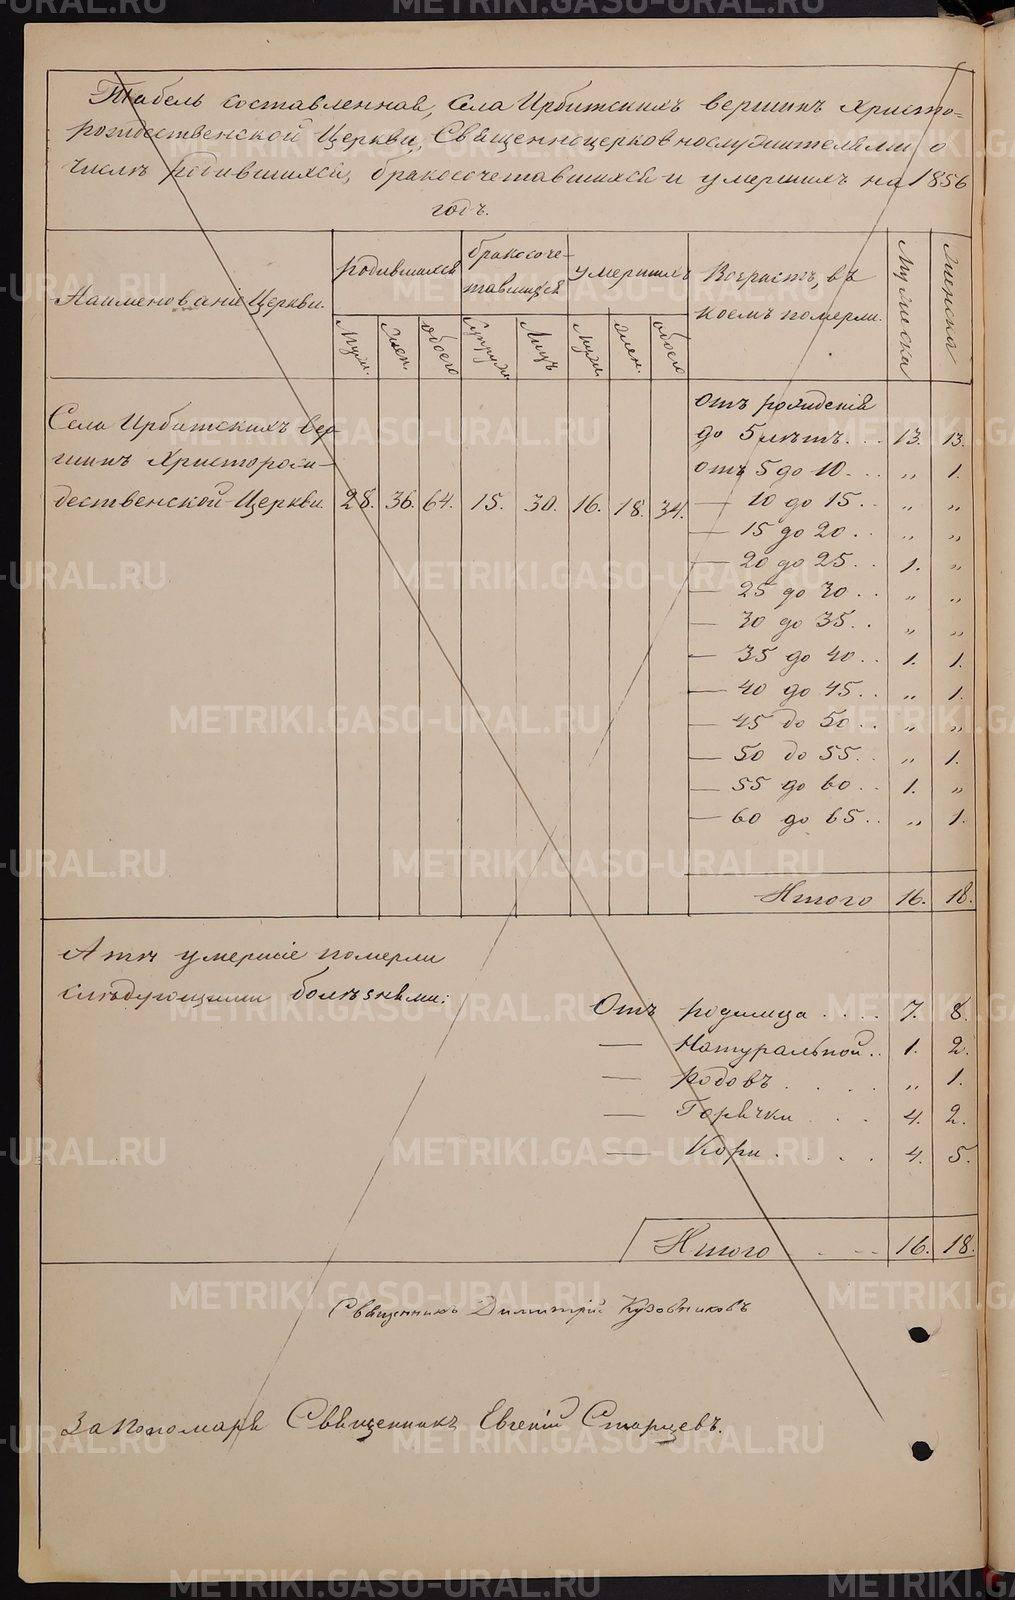 Табель составленная, Села Ирбитскихъ вершинъ Христо-
рождественской Церкви, Священноцерковнослужителями о
числѣ родившихся, бракосочетавшихся и умершихъ на 1856
годъ.
Наименованіе Церкви. родившихся бракосоче-тавшихся умершихъ Возрастъ, въ коемъ померли. Мужеска Женска
Муж. Жен. обоего Супруж. Лицъ Муж. Жен. обоего
Села Ирбитскихъ вер-
шинъ Христорож-
дественской Церкви. 28. 36. 64. 15. 30. 16. 18. 34.
Отъ рожденія
до 5 лѣтъ... 13. 13.
Отъ 5 до 10... „ 1.
— 10 до 15.. „ „
— 15 до 20.. „ „
— 20 до 25.. 1. „
— 25 до 30.. „ „
— 30 до 35.. „ „
— 35 до 40.. 1. 1.
— 40 до 45.. „ 1.
— 45 до 50.. „ „
— 50 до 55.. „ 1.
— 55 до 60.. 1. „
— 60 до 65.. „ 1.
Итого 16. 18.
А тѣ умершіе померли
слѣдующими болѣзнями:
Отъ родимца .... 7. 8.
— Натуральной.. 1. 2.
— родовъ .... „ 1.
— Горячки ... 4. 2.
— Кори .... 4. 5.
Итого .... 16. 18.
Священникъ Димитрій Кузовниковъ
За Пономаря Священникъ Евгеній Старцевъ.
METRIKI.GASO-URAL.RU